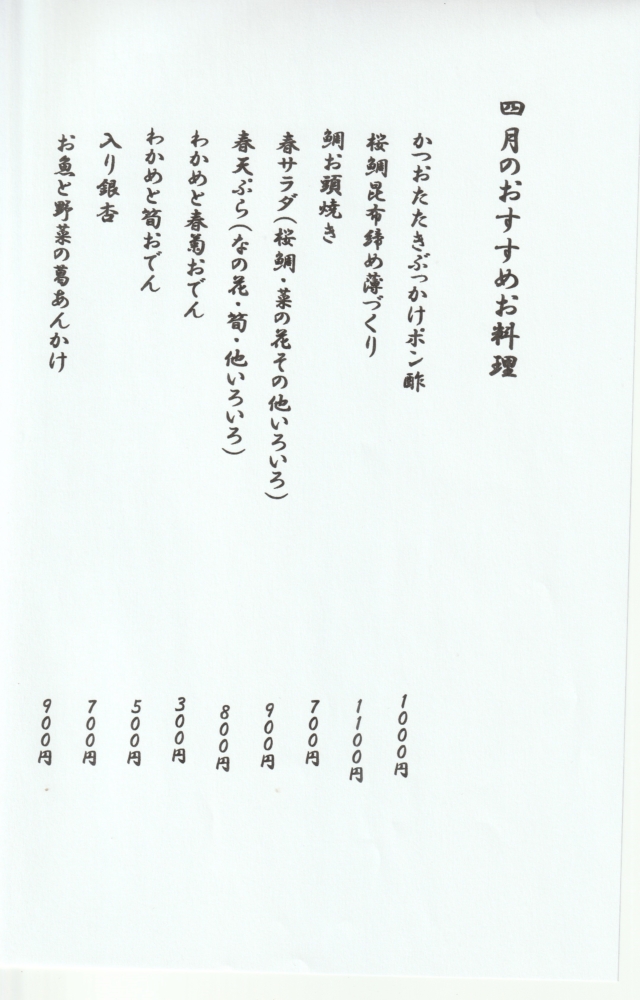 四月のおすすめお料理
かつおたたきぶっかけポン酢 1000円
桜鯛昆布締め薄づくり 1100円
鯛お頭焼き 700円
春サラダ(桜鯛・菜の花その他いろいろ) 900円
春天ぷら(なの花・筍・他いろいろ) 800円
わかめと春菊おでん 300円
わかめと筍おでん 500円
入り銀杏 700円
お魚と野菜の葛あんかけ 900円